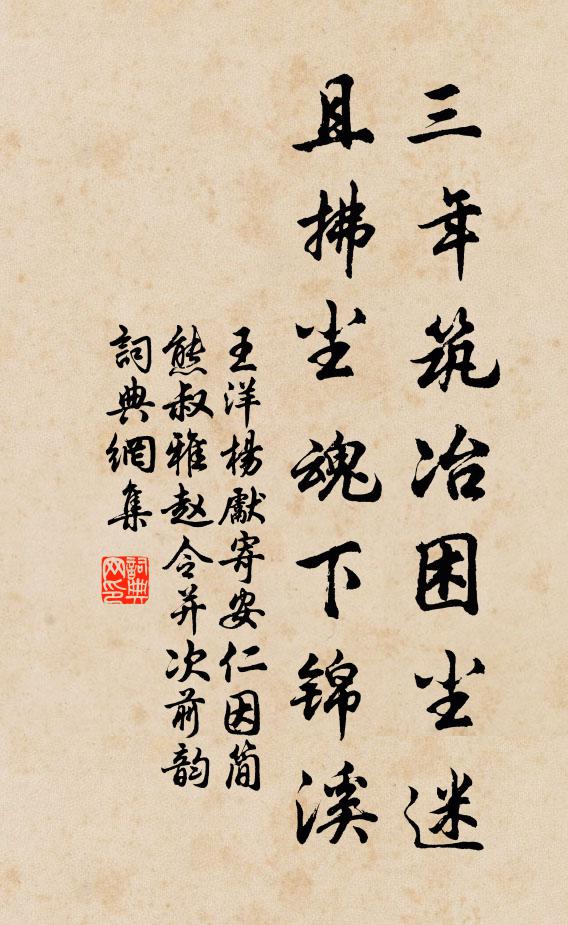 三年筑冶困尘迷
且拂尘魂下锦溪
王洋楊獻寄安仁因简
熊叔雅赵令并次前韵
詞典網集
詞典网印